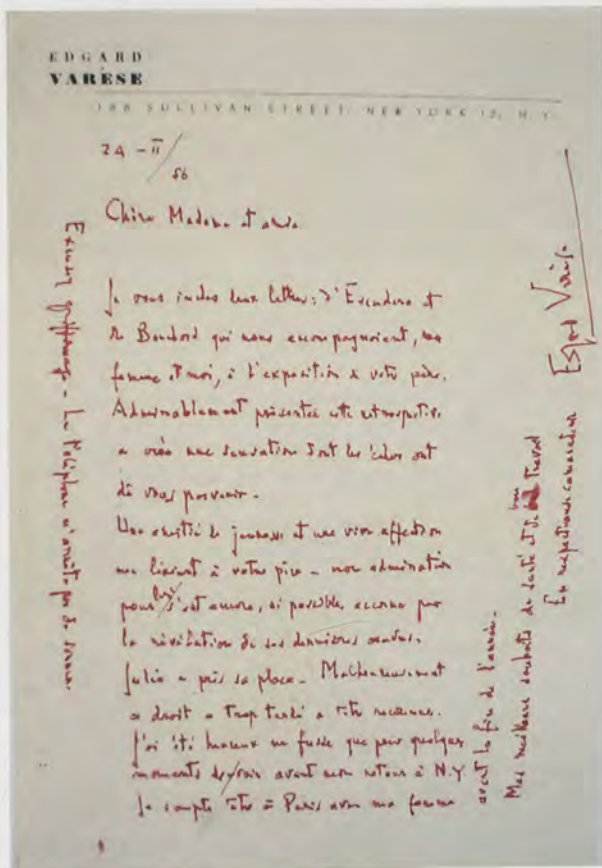 EDGARD
VARÈSE
188 SULLIVAN STREET, NEW YORK 12, N.Y.
24 - II / 56
Chère Madame et amie
Je vous inclus deux lettres: d'Escudero et
de qui nous accompagnaient, ma
femme et moi, à l'exposition de votre père.
Admirablement présentée cette rétrospective
a créé une sensation dont les échos ont
dû vous parvenir -
Une amitié de jeunesse et une vive affection
me liaient à votre père - mon admiration
pour lui s'est encore, si possible, accrue par
la révélation de ses dernières œuvres.
Julio a pris sa place - Malheureusement
ce droit a trop tardé a être reconnu.
J'ai été heureux ne fusse que pour quelques
moments avant mon retour à N.Y.
Je compte être à Paris avec ma femme
avant la fin de l'année.
Mes meilleurs souhaits de santé et de bon travail
En respectueuse camaraderie
Edgard Varèse
Excusez griffonnage - Le téléphone n'arrête pas de sonner.